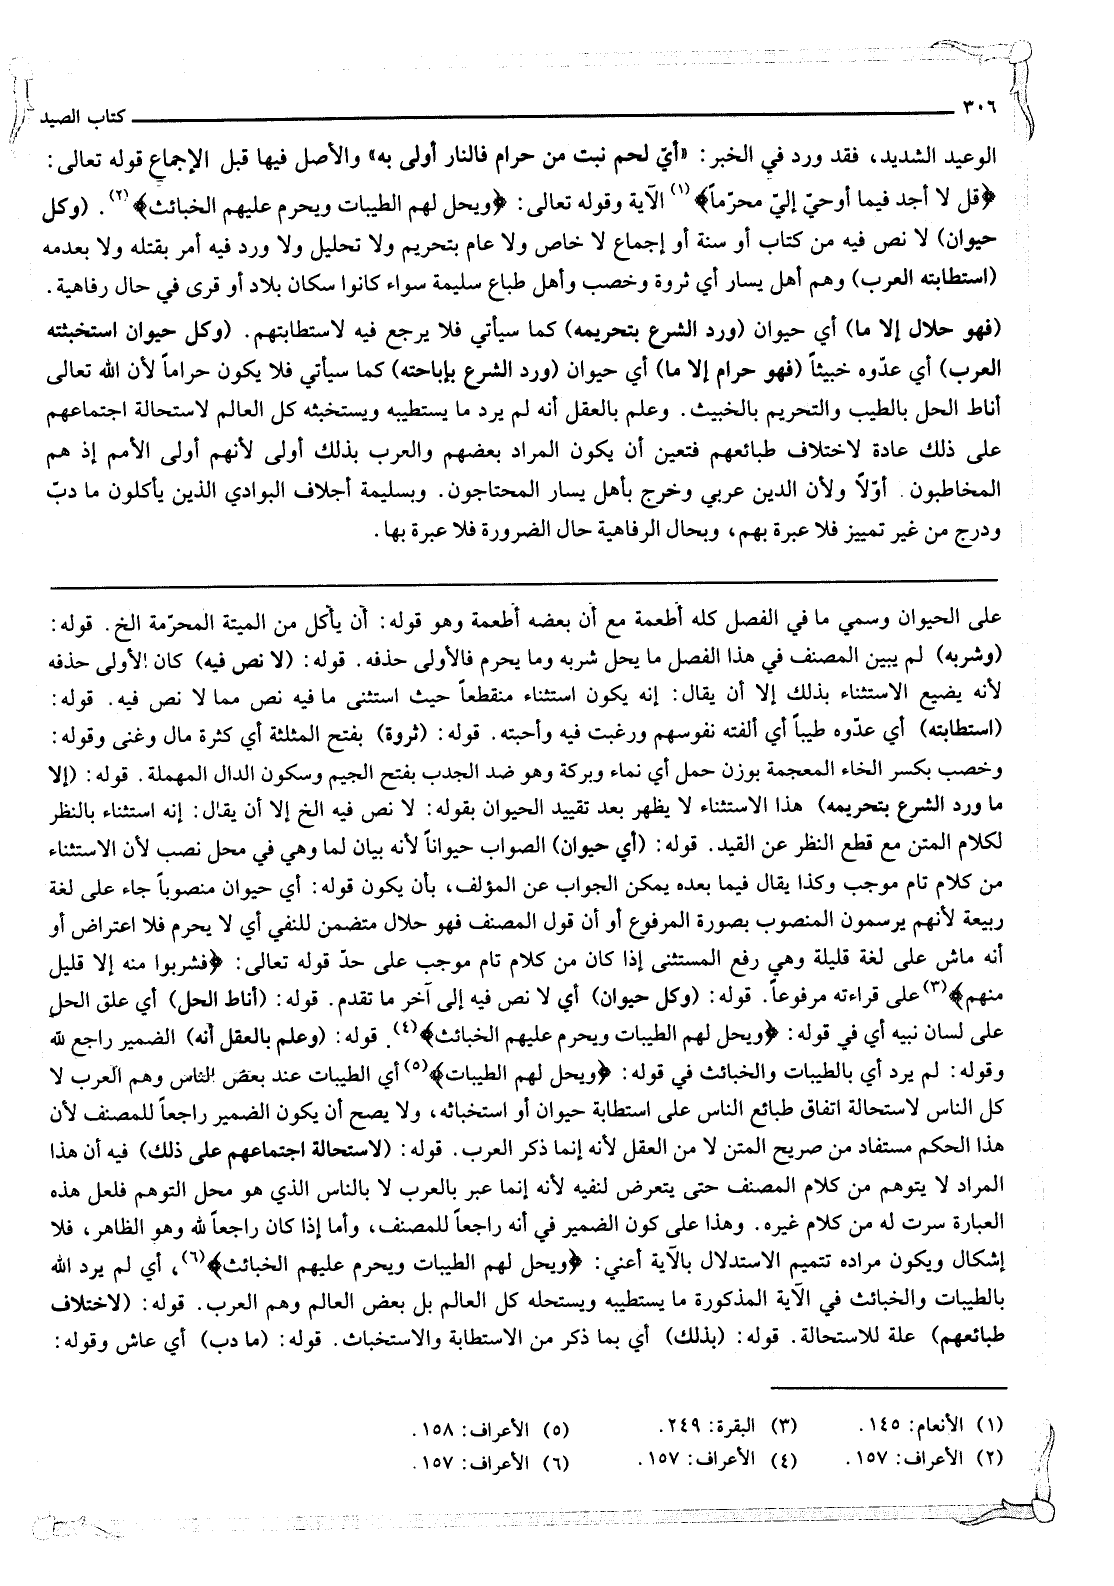 ٣٠٦
كتاب الصيد
الوعيد الشديد، فقد ورد في الخبر: «أيّ لحم نبت من حرام فالنار أولى به» والأصل فيها قبل الإجماع قوله تعالى:
﴿قل لا أجد فيما أوحيّ إليّ محرّماً﴾(١) الآية وقوله تعالى: ﴿ويحل لهم الطيبات ويحرم عليهم الخبائث﴾(٢). (وكل
حيوان) لا نص فيه من كتاب أو سنة أو إجماع لا خاص ولا عام بتحريم ولا تحليل ولا ورد فيه أمر بقتله ولا بعدمه
(استطابته العرب) وهم أهل يسار أي ثروة وخصب وأهل طباع سليمة سواء كانوا سكان بلاد أو قرى في حال رفاهية.
(فهو حلال إلا ما) أي حيوان (ورد الشرع بتحريمه) كما سيأتي فلا يرجع فيه لاستطابتهم. (وكل حيوان استخبثته
العرب) أي عدّوه خبيثاً (فهو حرام إلا ما) أي حيوان (ورد الشرع بإباحته) كما سيأتي فلا يكون حراماً لأن الله تعالى
أناط الحل بالطيب والتحريم بالخبيث. وعلم بالعقل أنه لم يرد ما يستطيبه ويستخبثه كل العالم لاستحالة اجتماعهم
على ذلك عادة لاختلاف طبائعهم فتعين أن يكون المراد بعضهم والعرب بذلك أولى لأنهم أولى الأمم إذ هم
المخاطبون. أوّلاً ولأن الدين عربي وخرج بأهل يسار المحتاجون. وبسليمة أجلاف البوادي الذين يأكلون ما دبّ
ودرج من غير تمييز فلا عبرة بهم، وبحال الرفاهية حال الضرورة فلا عبرة بها.
على الحيوان وسمي ما في الفصل كله أطعمة مع أن بعضه أطعمة وهو قوله: أن يأكل من الميتة المحرّمة الخ. قوله:
(وشربه) لم يبين المصنف في هذا الفصل ما يحل شربه وما يحرم فالأولى حذفه. قوله: (لا نص فيه) كان الأولى حذفه
لأنه يضيع الاستثناء بذلك إلا أن يقال: إنه يكون استثناء منقطعاً حيث استثنى ما فيه نص مما لا نص فيه. قوله:
(استطابته) أي عدّوه طيباً أي ألفته نفوسهم ورغبت فيه وأحبته. قوله: (ثروة) بفتح المثلثة أي كثرة مال وغنى وقوله:
وخصب بكسر الخاء المعجمة بوزن حمل أي نماء وبركة وهو ضد الجدب بفتح الجيم وسكون الدال المهملة. قوله: (إلا
ما ورد الشرع بتحريمه) هذا الاستثناء لا يظهر بعد تقييد الحيوان بقوله: لا نص فيه الخ إلا أن يقال: إنه استثناء بالنظر
لكلام المتن مع قطع النظر عن القيد. قوله: (أي حيوان) الصواب حيواناً لأنه بيان لما وهي في محل نصب لأن الاستثناء
من كلام تام موجب وكذا يقال فيما بعده يمكن الجواب عن المؤلف، بأن يكون قوله: أي حيوان منصوباً جاء على لغة
ربيعة لأنهم يرسمون المنصوب بصورة المرفوع أو أن قول المصنف فهو حلال متضمن للنفي أي لا يحرم فلا اعتراض أو
أنه ماش على لغة قليلة وهي رفع المستثنى إذا كان من كلام تام موجب على حدّ قوله تعالى: ﴿فشربوا منه إلا قليل
منهم﴾(٣) على قراءته مرفوعاً. قوله: (وكل حيوان) أي لا نص فيه إلى آخر ما تقدم. قوله: (أناط الحل) أي علق الحل
على لسان نبيه أي في قوله: ﴿ويحل لهم الطيبات ويحرم عليهم الخبائث﴾(٤). قوله: (وعلم بالعقل أنه) الضمير راجع لله
وقوله: لم يرد أي بالطيبات والخبائث في قوله: ﴿ويحل لهم الطيبات﴾(٥) أي الطيبات عند بعض الناس وهم العرب لا
كل الناس لاستحالة اتفاق طبائع الناس على استطابة حيوان أو استخباثه، ولا يصح أن يكون الضمير راجعاً للمصنف لأن
هذا الحكم مستفاد من صريح المتن لا من العقل لأنه إنما ذكر العرب. قوله: (لاستحالة اجتماعهم على ذلك) فيه أن هذا
المراد لا يتوهم من كلام المصنف حتى يتعرض لنفيه لأنه إنما عبر بالعرب لا بالناس الذي هو محل التوهم فلعل هذه
العبارة سرت له من كلام غيره. وهذا على كون الضمير في أنه راجعاً للمصنف، وأما إذا كان راجعاً لله وهو الظاهر، فلا
إشكال ويكون مراده تتميم الاستدلال بالآية أعني: ﴿ويحل لهم الطيبات ويحرم عليهم الخبائث﴾(٦)، أي لم يرد الله
بالطيبات والخبائث في الآية المذكورة ما يستطيبه ويستحله كل العالم بل بعض العالم وهم العرب. قوله: (لاختلاف
طبائعهم) علة للاستحالة. قوله: (بذلك) أي بما ذكر من الاستطابة والاستخباث. قوله: (ما دب) أي عاش وقوله:
(١) الأنعام: ١٤٥.
(٣) البقرة: ٢٤٩.
(٥) الأعراف: ١٥٨.
(٢) الأعراف: ١٥٧.
(٤) الأعراف: ١٥٧.
(٦) الأعراف: ١٥٧.